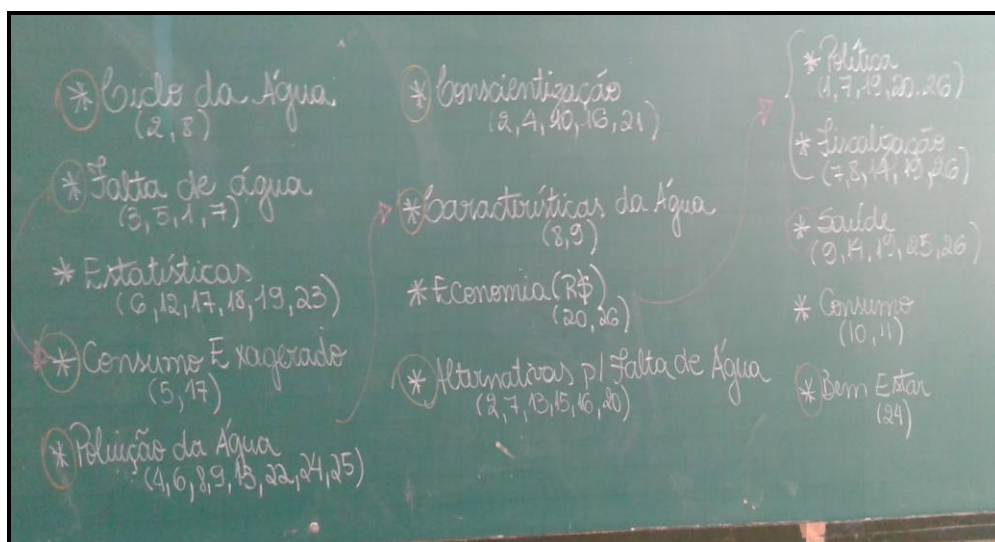 * Ciclo da Água
(2, 8)
* Falta de água
(3, 5, 1, 7)
* Estatísticas
(6, 12, 17, 18, 19, 23)
* Consumo Exagerado
(5, 17)
* Poluição da Água
(4, 6, 8, 9, 13, 22, 24, 25)
* Conscientização
(2, 4, 10, 16, 21)
* Características da Água
(8, 9)
* Economia (R$)
(20, 26)
* Alternativas p/ Falta de Água
(2, 7, 13, 15, 16, 20)
* Política
(1, 7, 19, 20, 26)
* Fiscalização
(7, 8, 14, 19, 26)
* Saúde
(9, 14, 19, 25, 26)
* Consumo
(10, 11)
* Bem Estar
(24)